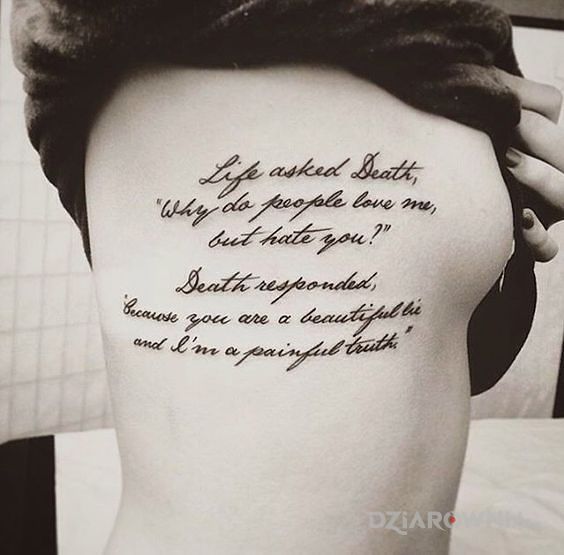 Life asked Death,
"Why do people love me,
but hate you?"
Death responded,
"Because you are a beautiful lie
and I'm a painful truth."